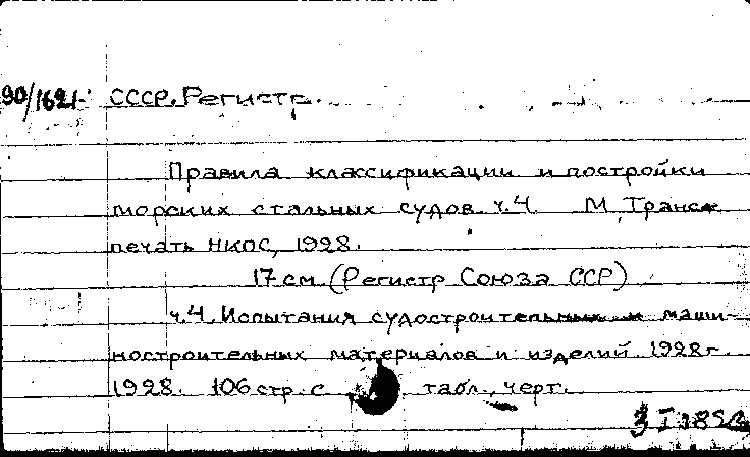 90/1621- СССР. Регистр.
Правила классификации и постройки
морских стальных судов. ч.4. М, Транс-
печать НКПС, 1928.
17 см (Регистр Союза ССР)
ч.4. Испытания судостроительных и маши-
ностроительных материалов и изделий 1928г.
1928. 106 стр. с табл., черт.